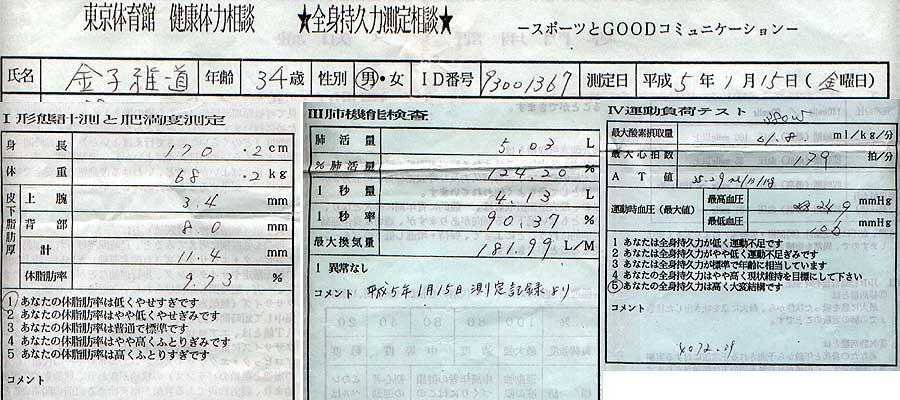 東京体育館 健康体力相談 ★全身持久力測定相談★ －スポーツとGOODコミュニケーション－
氏名 金子雅道 年齢 34歳 性別 男・女 ID番号 93001367 測定日 平成5年1月15日（金曜日）
I 形態計測と肥満度測定
身長 170.2cm
体重 68.2kg
皮下脂肪厚
上腕 3.4 mm
背部 8.0 mm
計 11.4 mm
体脂肪率 9.73 %
1 あなたの体脂肪率は低くやせすぎです
2 あなたの体脂肪率はやや低くやせぎみです
3 あなたの体脂肪率は普通で標準です
4 あなたの体脂肪率はやや高くふとりぎみです
5 あなたの体脂肪率は高くふとりすぎです
コメント
III肺機能検査
肺活量 5.03 L
%肺活量 124.20 %
1秒量 4.13 L
1秒率 90.37 %
最大換気量 181.99 L/M
1 異常なし
コメント 平成5年1月15日測定記録より
IV運動負荷テスト
280W
最大酸素摂取量 61.8 ml/kg/分
最大心拍数 179 拍/分
AT値
運動時血圧（最大値）
最高血圧 249 mmHg
最低血圧 106 mmHg
1 あなたは全身持久力が低く運動不足です
2 あなたは全身持久力がやや低く運動不足ぎみです
3 あなたは全身持久力が標準で年齢に相当しています
4 あなたの全身持久力はやや高く現状維持を目標にして下さい
5 あなたの全身持久力は高く大変結構です
コメント